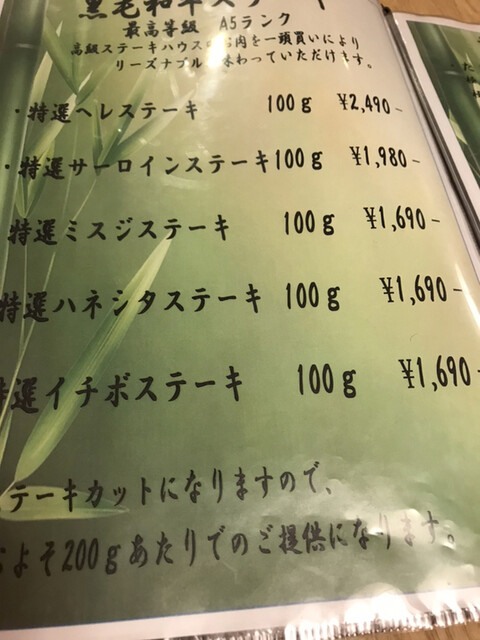 黒毛和牛ステーキ
最高等級 A5ランク
高級ステーキハウスのお肉を一頭買いにより
リーズナブル 味わっていただけます。
・特選ヘレステーキ 100g ¥2,490-
・特選サーロインステーキ100g ¥1,980-
特選ミスジステーキ 100g ¥1,690-
特選ハネシタステーキ 100g ¥1,690-
特選イチボステーキ 100g ¥1,690-
テーキカットになりますので、
およそ200gあたりでのご提供になります。